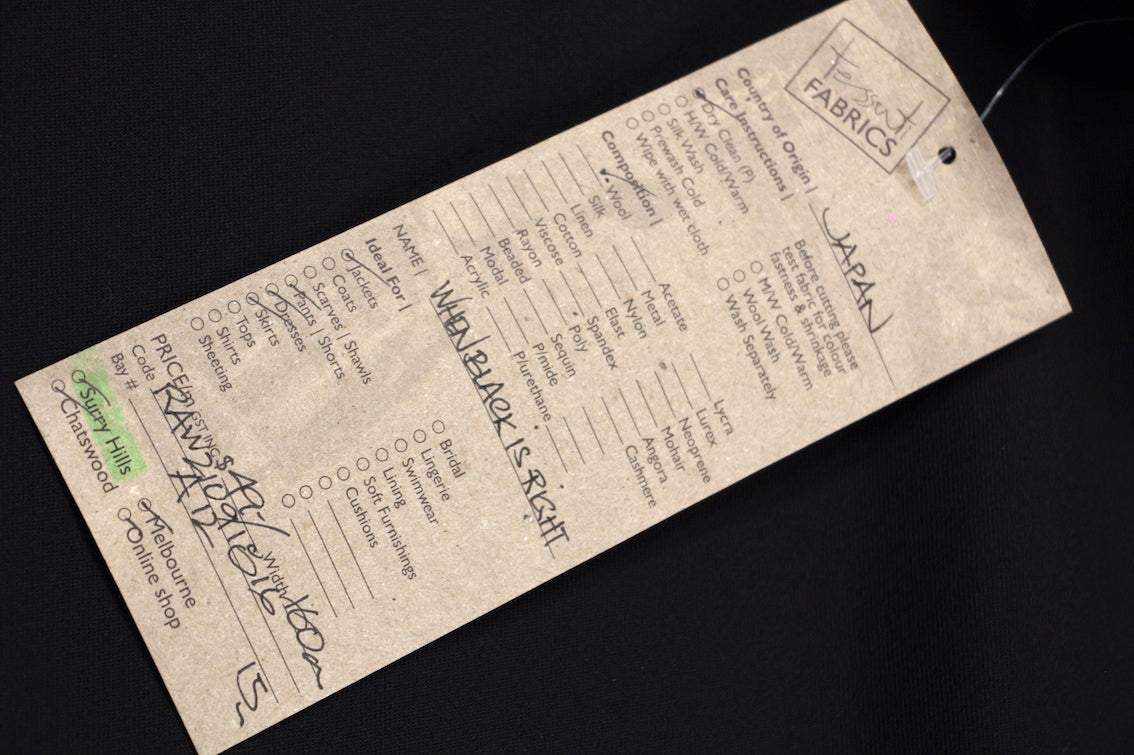 Tessuti
FABRICS
Country of Origin | JAPAN
Care Instructions |
Dry Clean (P)
H/W Cold/Warm
Silk Wash
Prewash Cold
Wipe with wet cloth
Before cutting please
test fabric for colour
fastness & shrinkage
M/W Cold/Warm
Wool Wash
Wash Separately
Composition |
Wool
Silk
Linen
Cotton
Viscose
Rayon
Beaded
Modal
Acrylic
Acetate
Metal
Nylon
Elast
Spandex
Poly
Sequin
P/mide
P/urethane
Lycra
Lurex
Neoprene
Mohair
Angora
Cashmere
NAME | WHEN BLACK IS RIGHT
Ideal For |
Jackets
Coats
Scarves | Shawls
Pants | Shorts
Dresses
Skirts
Tops
Shirts
Sheeting
Bridal
Lingerie
Swimwear
Lining
Soft Furnishings
Cushions
PRICE/m GST INC $49/ Width 160cm
Code
Bay #
Surry Hills
Chatswood
Melbourne
Online shop